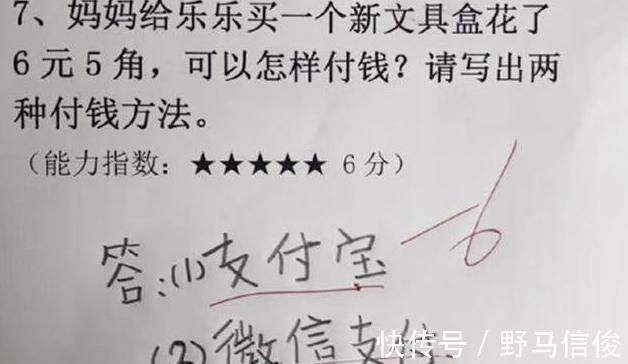 7、妈妈给乐乐买一个新文具盒花了
6元5角，可以怎样付钱？请写出两
种付钱方法。
（能力指数：★★★★★ 6分）
答：(1)支付宝 -6
(2)微信支付
快传号 / 野马信俊